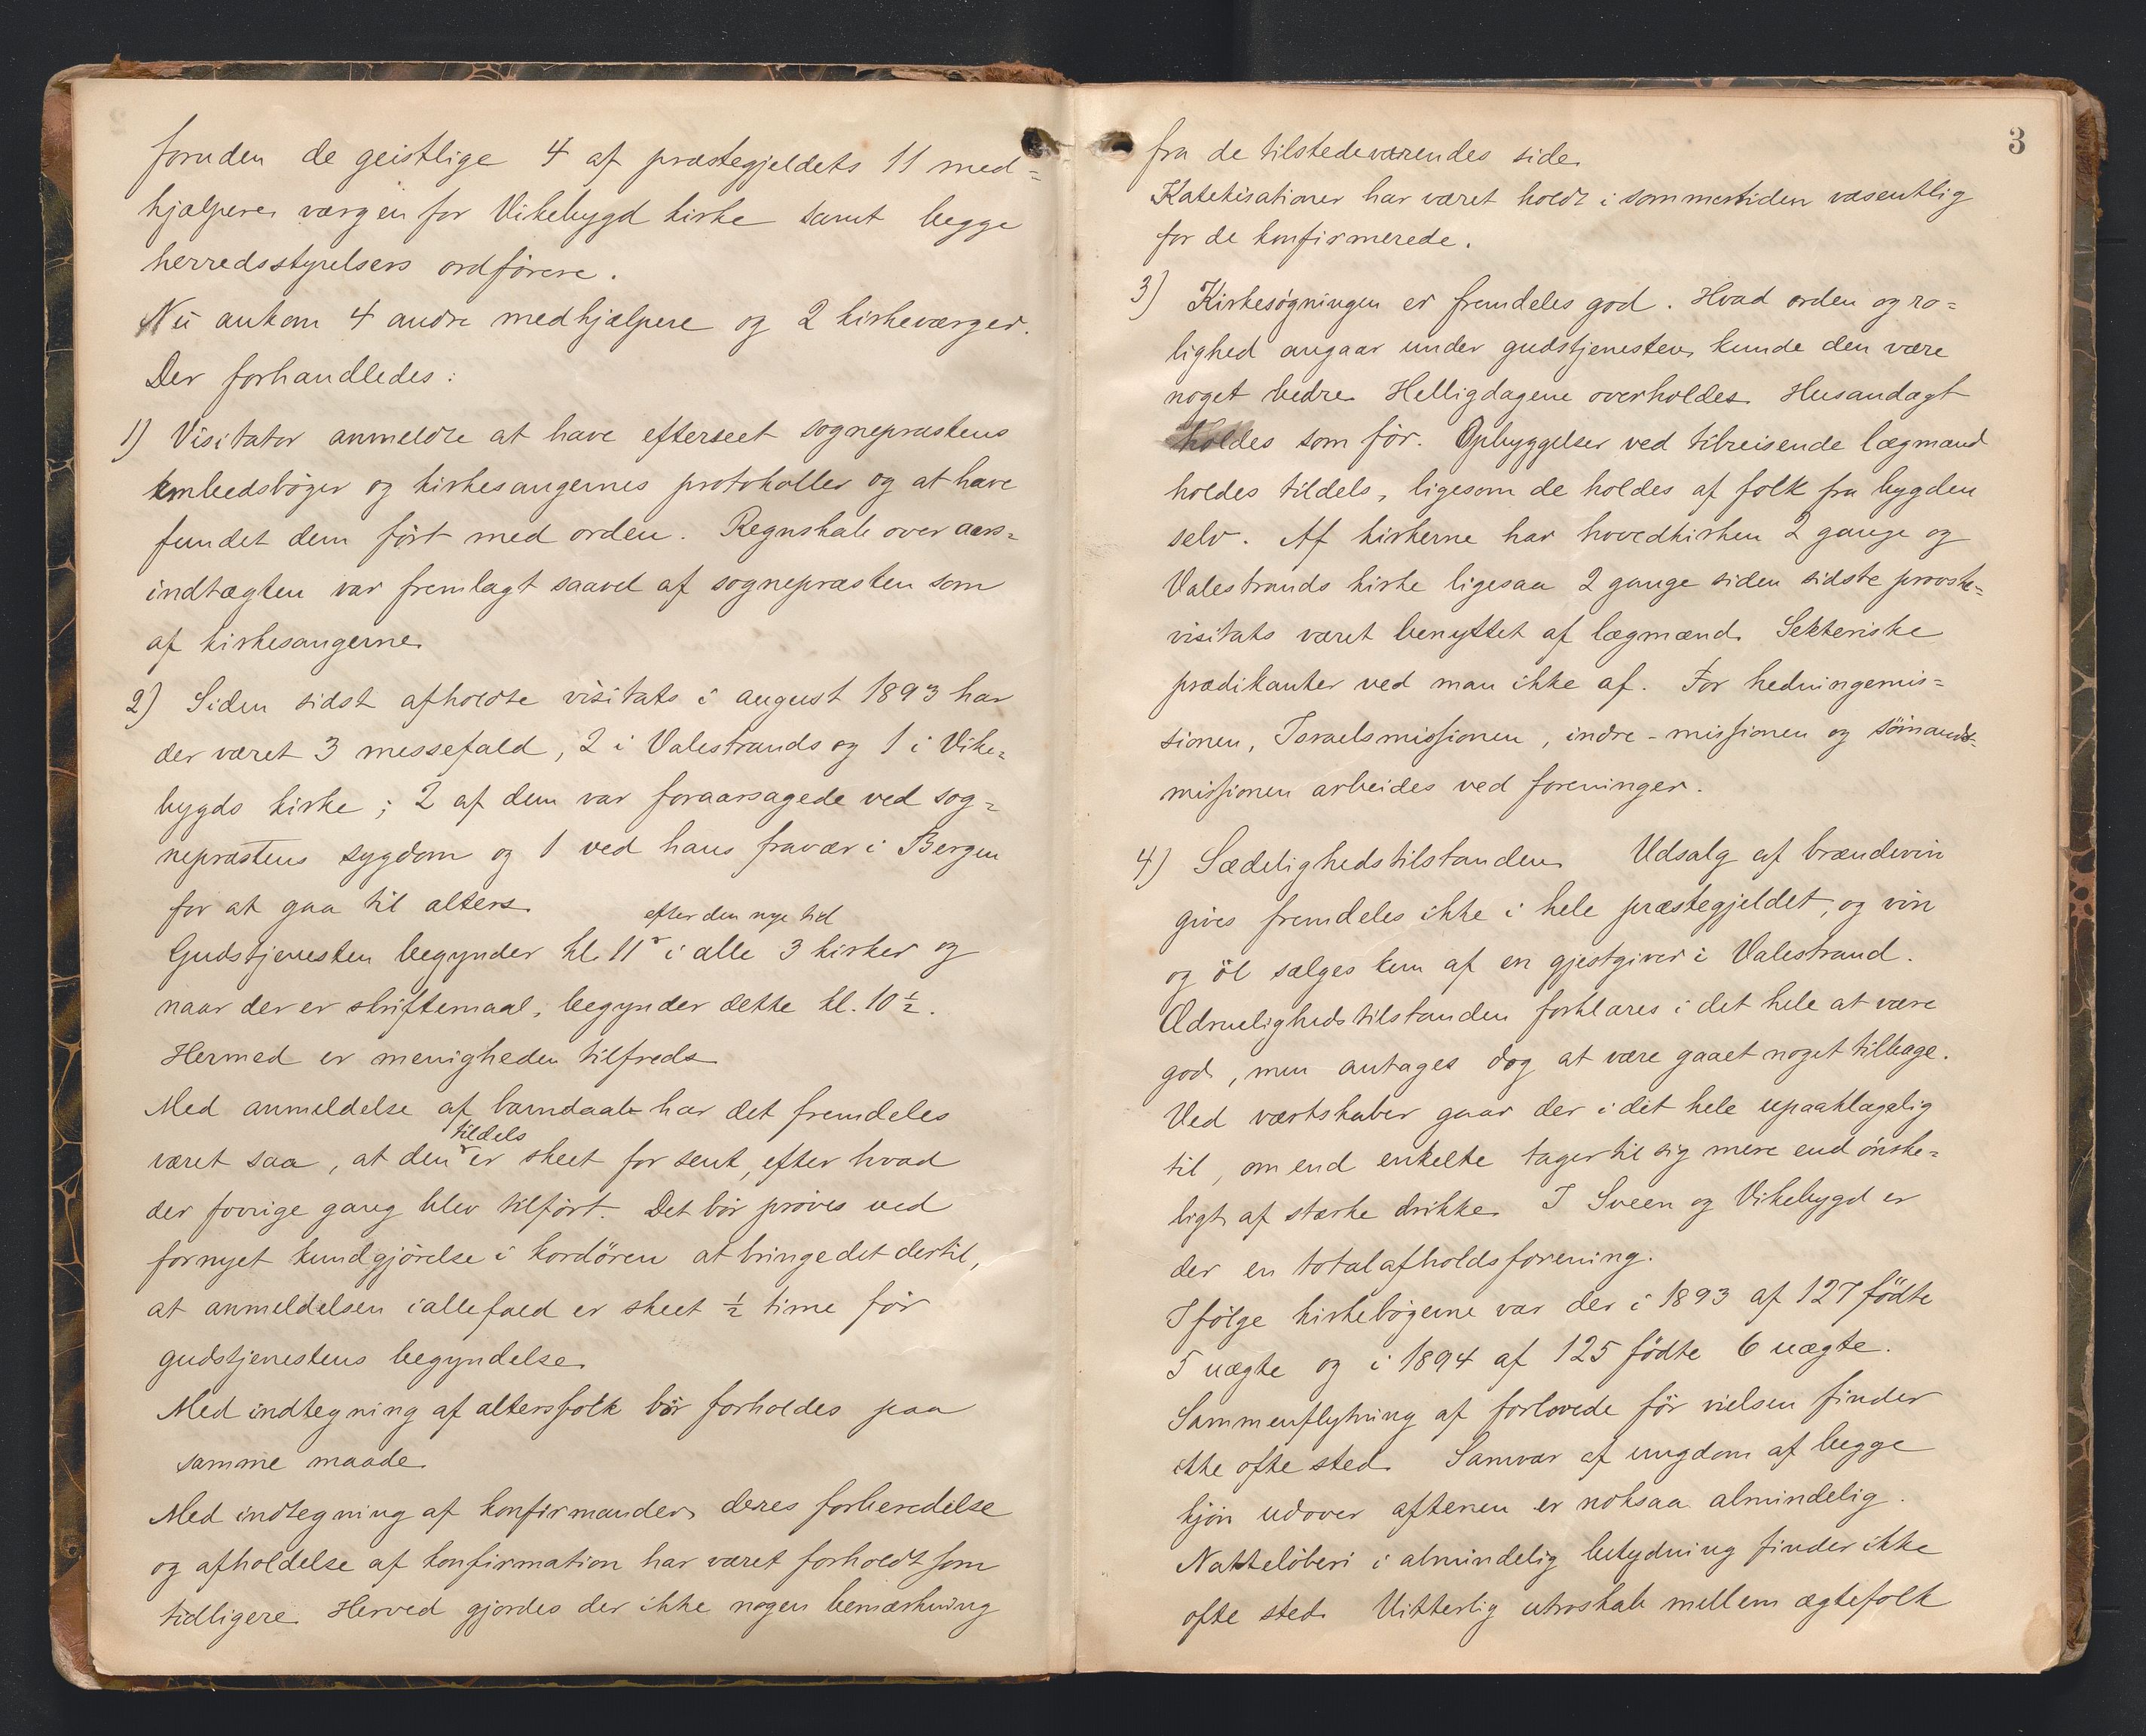 foruden de geistlige 4 af præstegjeldets 11 med=
hjælpere, værgen for Vikebygd kirke samt begge
herredsstyrelsers ordförere.
Nu ankom 4 andre medhjælpere og 2 kirkeværger.
Der forhandledes:
1) Visitator anmeldte at have efterseet sognepræstens
embedsböger og kirkesangernes protokoller og at have
fundet dem fört med orden. Regnskab over aars=
indtægten var fremlagt saavel af sognepræsten som
af kirkesangerne.
2) Siden sidst afholdte visitats i august 1893 har
der været 3 messefald, 2 i Valestrands og 1 i Vike=
bygds kirke; 2 af dem var foraarsagede ved sog=
nepræstens sygdom og 1 ved hans fravær i Bergen
for at gaa til alters.
efter den nye tid
Gudstjenesten begynder kl. 11 i alle 3 kirker og
naar der er skriftemaal, begynder dette kl. 10 ½.
Hermed er menigheden tilfreds.
Med anmeldelse af barndaab har det fremdeles
tildels
været saa, at den er skeet for sent, efter hvad
der forrige gang blev tilfört. Det bör pröves ved
fornyet kundgjörelse i kordören at bringe det dertil,
at anmeldelsen iallefald er skeet ½ time för
gudstjenestens begyndelse.
Med indtegning af altersfolk bör forholdes paa
samme maade.
Med indtegning af konfirmander, deres forberedelse
og afholdelse af konfirmation har været forholdt som
tidligere. Herved gjordes der ikke nogen bemærkning
3
fra de tilstedeværendes side.
Katekisationer har været holdt i sommertiden væsentlig
for de konfirmerede.
3) Kirkesøgningen er fremdeles god. Hvad orden og ro=
lighed angaar under gudstjenesten, kunde den være
noget bedre. Helligdagene overholdes. Husandagt
holdes som för. Opbyggelser ved tilreisende lægmænd
holdes tildels, ligesom de holdes af folk fra bygden
selv. Af kirkerne har hovedkirken 2 gange og
Valestrands kirke ligesaa 2 gange siden sidste provste=
visitats været benyttet af lægmænd. Sekteriske
prædikanter ved man ikke af. For hedningemis=
sionen, Israelsmissionen, indre-missionen og sömands=
missionen arbeides ved foreninger.
4) Sædelighedstilstanden. Udsalg af brændevin
gives fremdeles ikke i hele præstegjeldet, og vin
og öl sælges kun af en gjestgiver i Valestrand.
Ædruelighedstilstanden forklares i det hele at være
god, men antages dog at være gaaet noget tilbage.
Ved værtskaber gaar der i det hele upaaklagelig
til, om end enkelte tager til sig mere end önske=
ligt af stærke drikke. I Sveen og Vikebygd er
der en totalafholdsforening.
Ifölge kirkebögerne var der i 1893 af 127 födte
5 uægte og i 1894 af 125 födte 6 uægte.
Sammenflytning af forlovede för vielsen finder
ikke ofte sted. Samvær af ungdom af begge
kjön udover aftenen er noksaa almindelig.
Natteløberi i almindelig betydning finder ikke
ofte sted. Vitterlig utroskab mellem ægtefolk